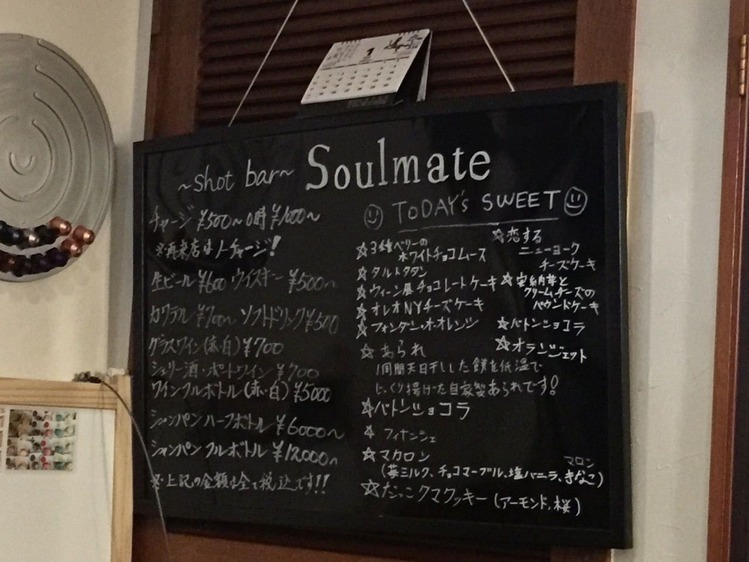 ~shot bar~ Soulmate
チャージ ¥500~ 0時 ¥1000~
※再来店はノーチャージ!
生ビール ¥600 ウイスキー ¥500~
カクテル ¥700~ ソフトドリンク ¥500
グラスワイン(赤・白) ¥700
シェリー酒・ポートワイン ¥700
ワインフルボトル(赤・白) ¥5000
シャンパン ハーフボトル ¥6000~
シャンパン フルボトル ¥12,000~
※上記の金額は全て税込です!!
TODAY'S SWEET
☆3種ベリーの
ホワイトチョコムース
☆タルトタタン
☆ウィーン風チョコレートケーキ
☆オレオNYチーズケーキ
☆フォンダン・オ・オレンジ
☆恋する
ニューヨーク
チーズケーキ
クリームチーズの
パウンドケーキ
☆バトンショコラ
☆オランジェット
☆あられ
1週間天日干しした餅を低温で
じっくり揚げた自家製あられです!
☆バトンショコラ
☆フィナンシェ
☆マカロン
マロン
(苺ミルク、チョコマーブル、塩バニラ、きなこ)
☆だっこクマクッキー(アーモンド、桜)